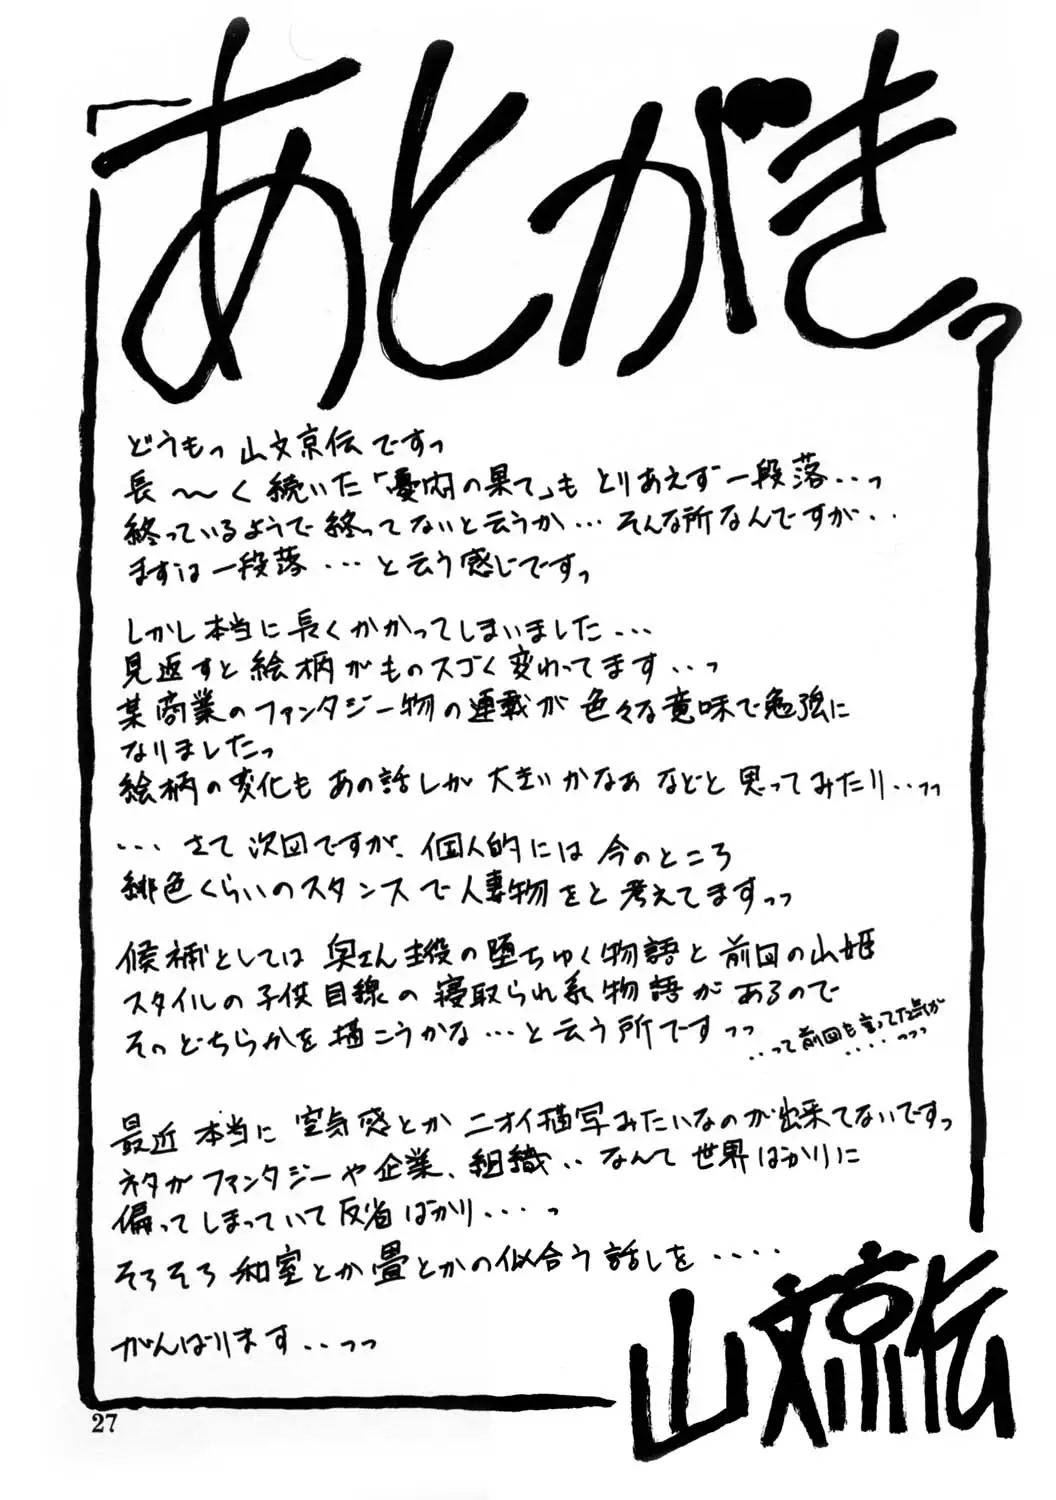 あとがきっ
どうもっ 山文京伝ですっ
長〜〜く続いた「憂肉の果て」も とりあえず一段落・・・っ
終っているようで終ってないと云うか・・・そんな所なんですが・・
まずは一段落・・・と云う感じですっ
しかし本当に長くかかってしまいました・・・
見返すと絵柄がものスゴく変わってます・・っ
某商業のファンタジー物の連載が色々な意味で勉強に
なりましたっ
絵柄の変化もあの話しが大きいかなぁなどと思ってみたり・・っっ
・・・さて次回ですが、個人的には今のところ
緋色くらいのスタンスで人妻物をと考えてますっっ
候補としては奥さん主役の堕ちゆく物語と前回の山姫
スタイルの子供目線の寝取られ系物語があるので
そのどちらかを描こうかな・・・と云う所ですっっ
・・って前回も言ってた気が
・・・・っっっ
最近本当に空気感とかニオイ描写みたいなのが出来てないですっ
ネタがファンタジーや企業、組織・・なんて世界ばかりに
偏ってしまっていて反省ばかり・・・・っ
そろそろ和室とか畳とかの似合う話しを・・・・
がんばります・・っっ
山文京伝
27